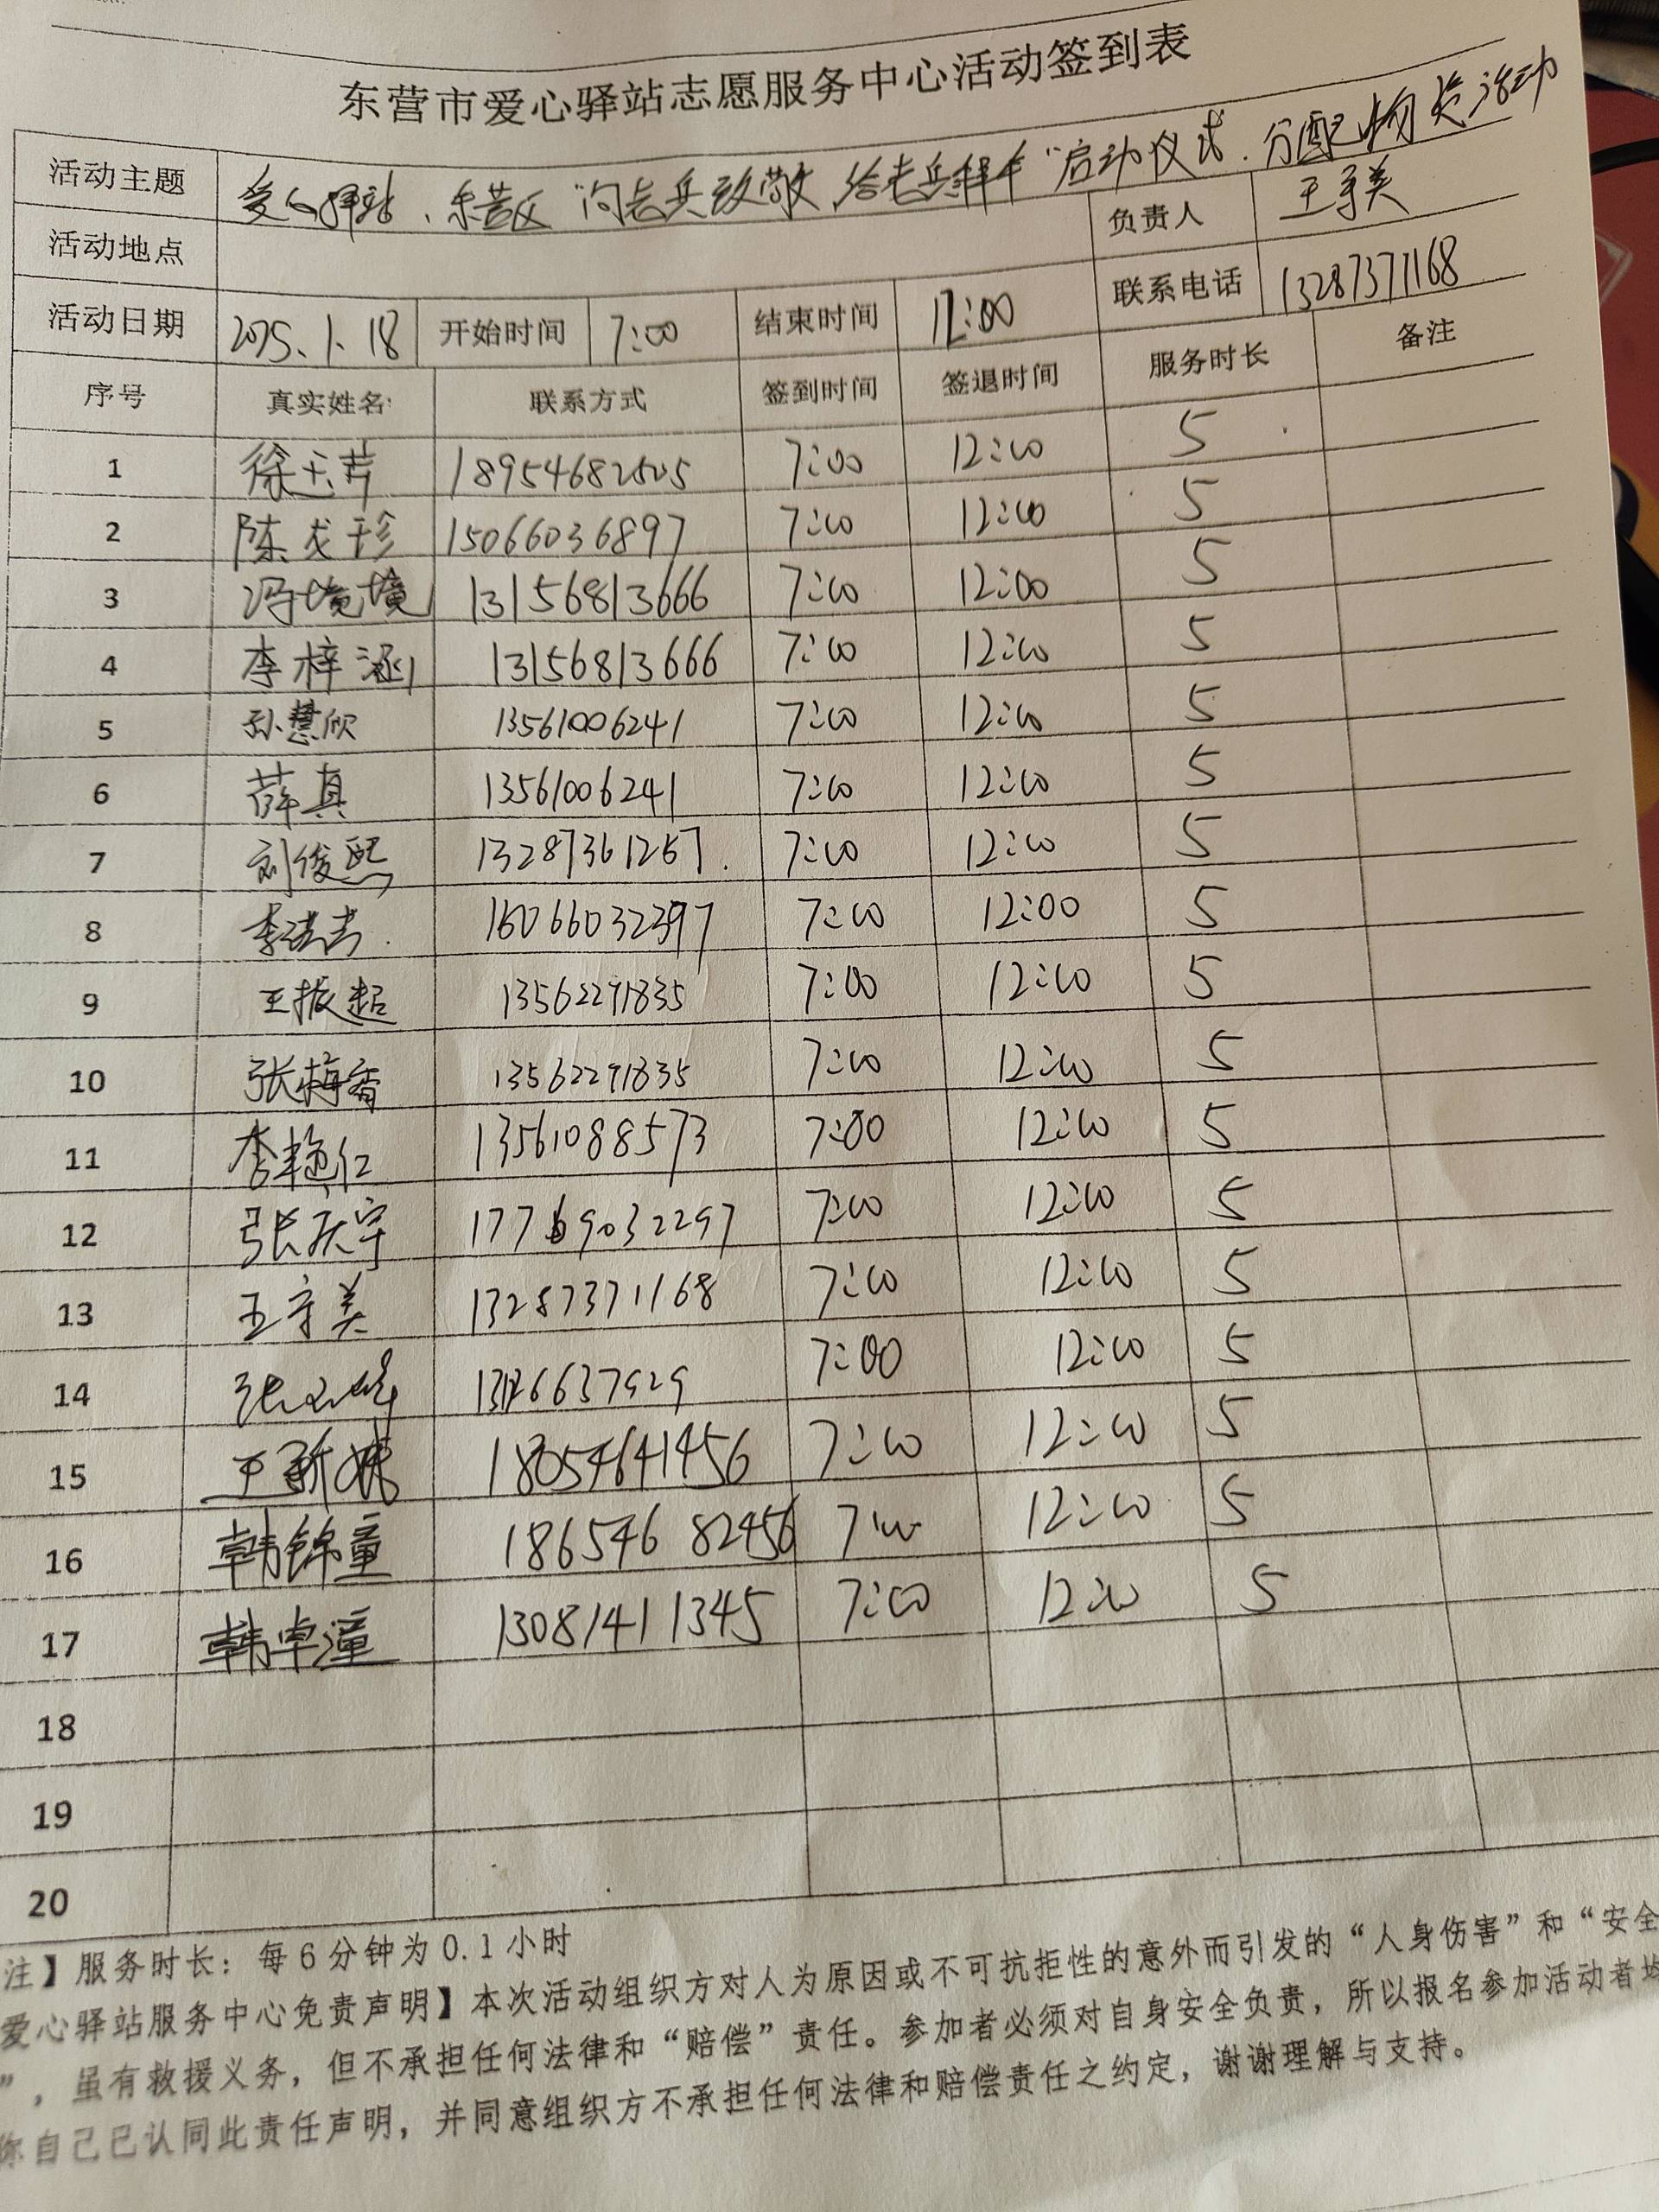 东营市爱心驿站志愿服务中心活动签到表
活动主题 爱心驿站、东营区“向老兵致敬，给老兵拜年”启动仪式、分配物资活动
活动地点 负责人 王守美
活动日期 2025.1.18 开始时间 7:00 结束时间 12:00 联系电话 13287371168
序号 真实姓名 联系方式 签到时间 签退时间 服务时长 备注
1 徐玉芹 18954682505 7:00 12:00 5
2 陈戈珍 15066036897 7:00 12:00 5
3 冯境境 13156813666 7:00 12:00 5
4 李梓涵 13156813666 7:00 12:00 5
5 孙慧欣 13561006241 7:00 12:00 5
6 薛真 13561006241 7:00 12:00 5
7 刘俊熙 13287361257 7:00 12:00 5
8 7:00 12:00 5
9 王振超 13562291835 7:00 12:00 5
10 张梅香 13562291835 7:00 12:00 5
11 李艳红 13561088573 7:00 12:00 5
12 张庆宇 17769032297 7:00 12:00 5
13 王守美 13287371168 7:00 12:00 5
14 7:00 12:00 5
15 18054641456 7:00 12:00 5
16 韩锦童 18654682456 7:00 12:00 5
17 韩卓潼 13081411345 7:00 12:00 5
18
19
20
注】服务时长：每6分钟为0.1小时
爱心驿站服务中心免责声明】本次活动组织方对人为原因或不可抗拒性的意外而引发的“人身伤害”和“安全
”，虽有救援义务，但不承担任何法律和“赔偿”责任。参加者必须对自身安全负责，所以报名参加活动者均
你自己已认同此责任声明，并同意组织方不承担任何法律和赔偿责任之约定，谢谢理解与支持。